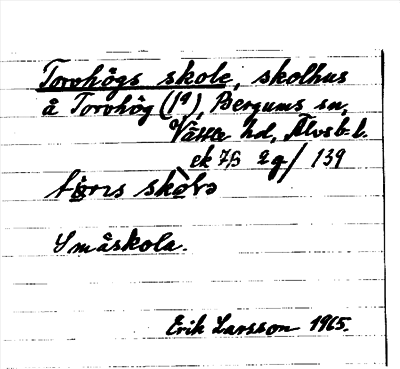 Torvhögs skole, skolhus
å Torvhög (1⁹), Bergums sn,
Vättle hd, Älvsb. l.
ek 7β 2g/139
skola
Småskola.
Erik Larsson 1965.